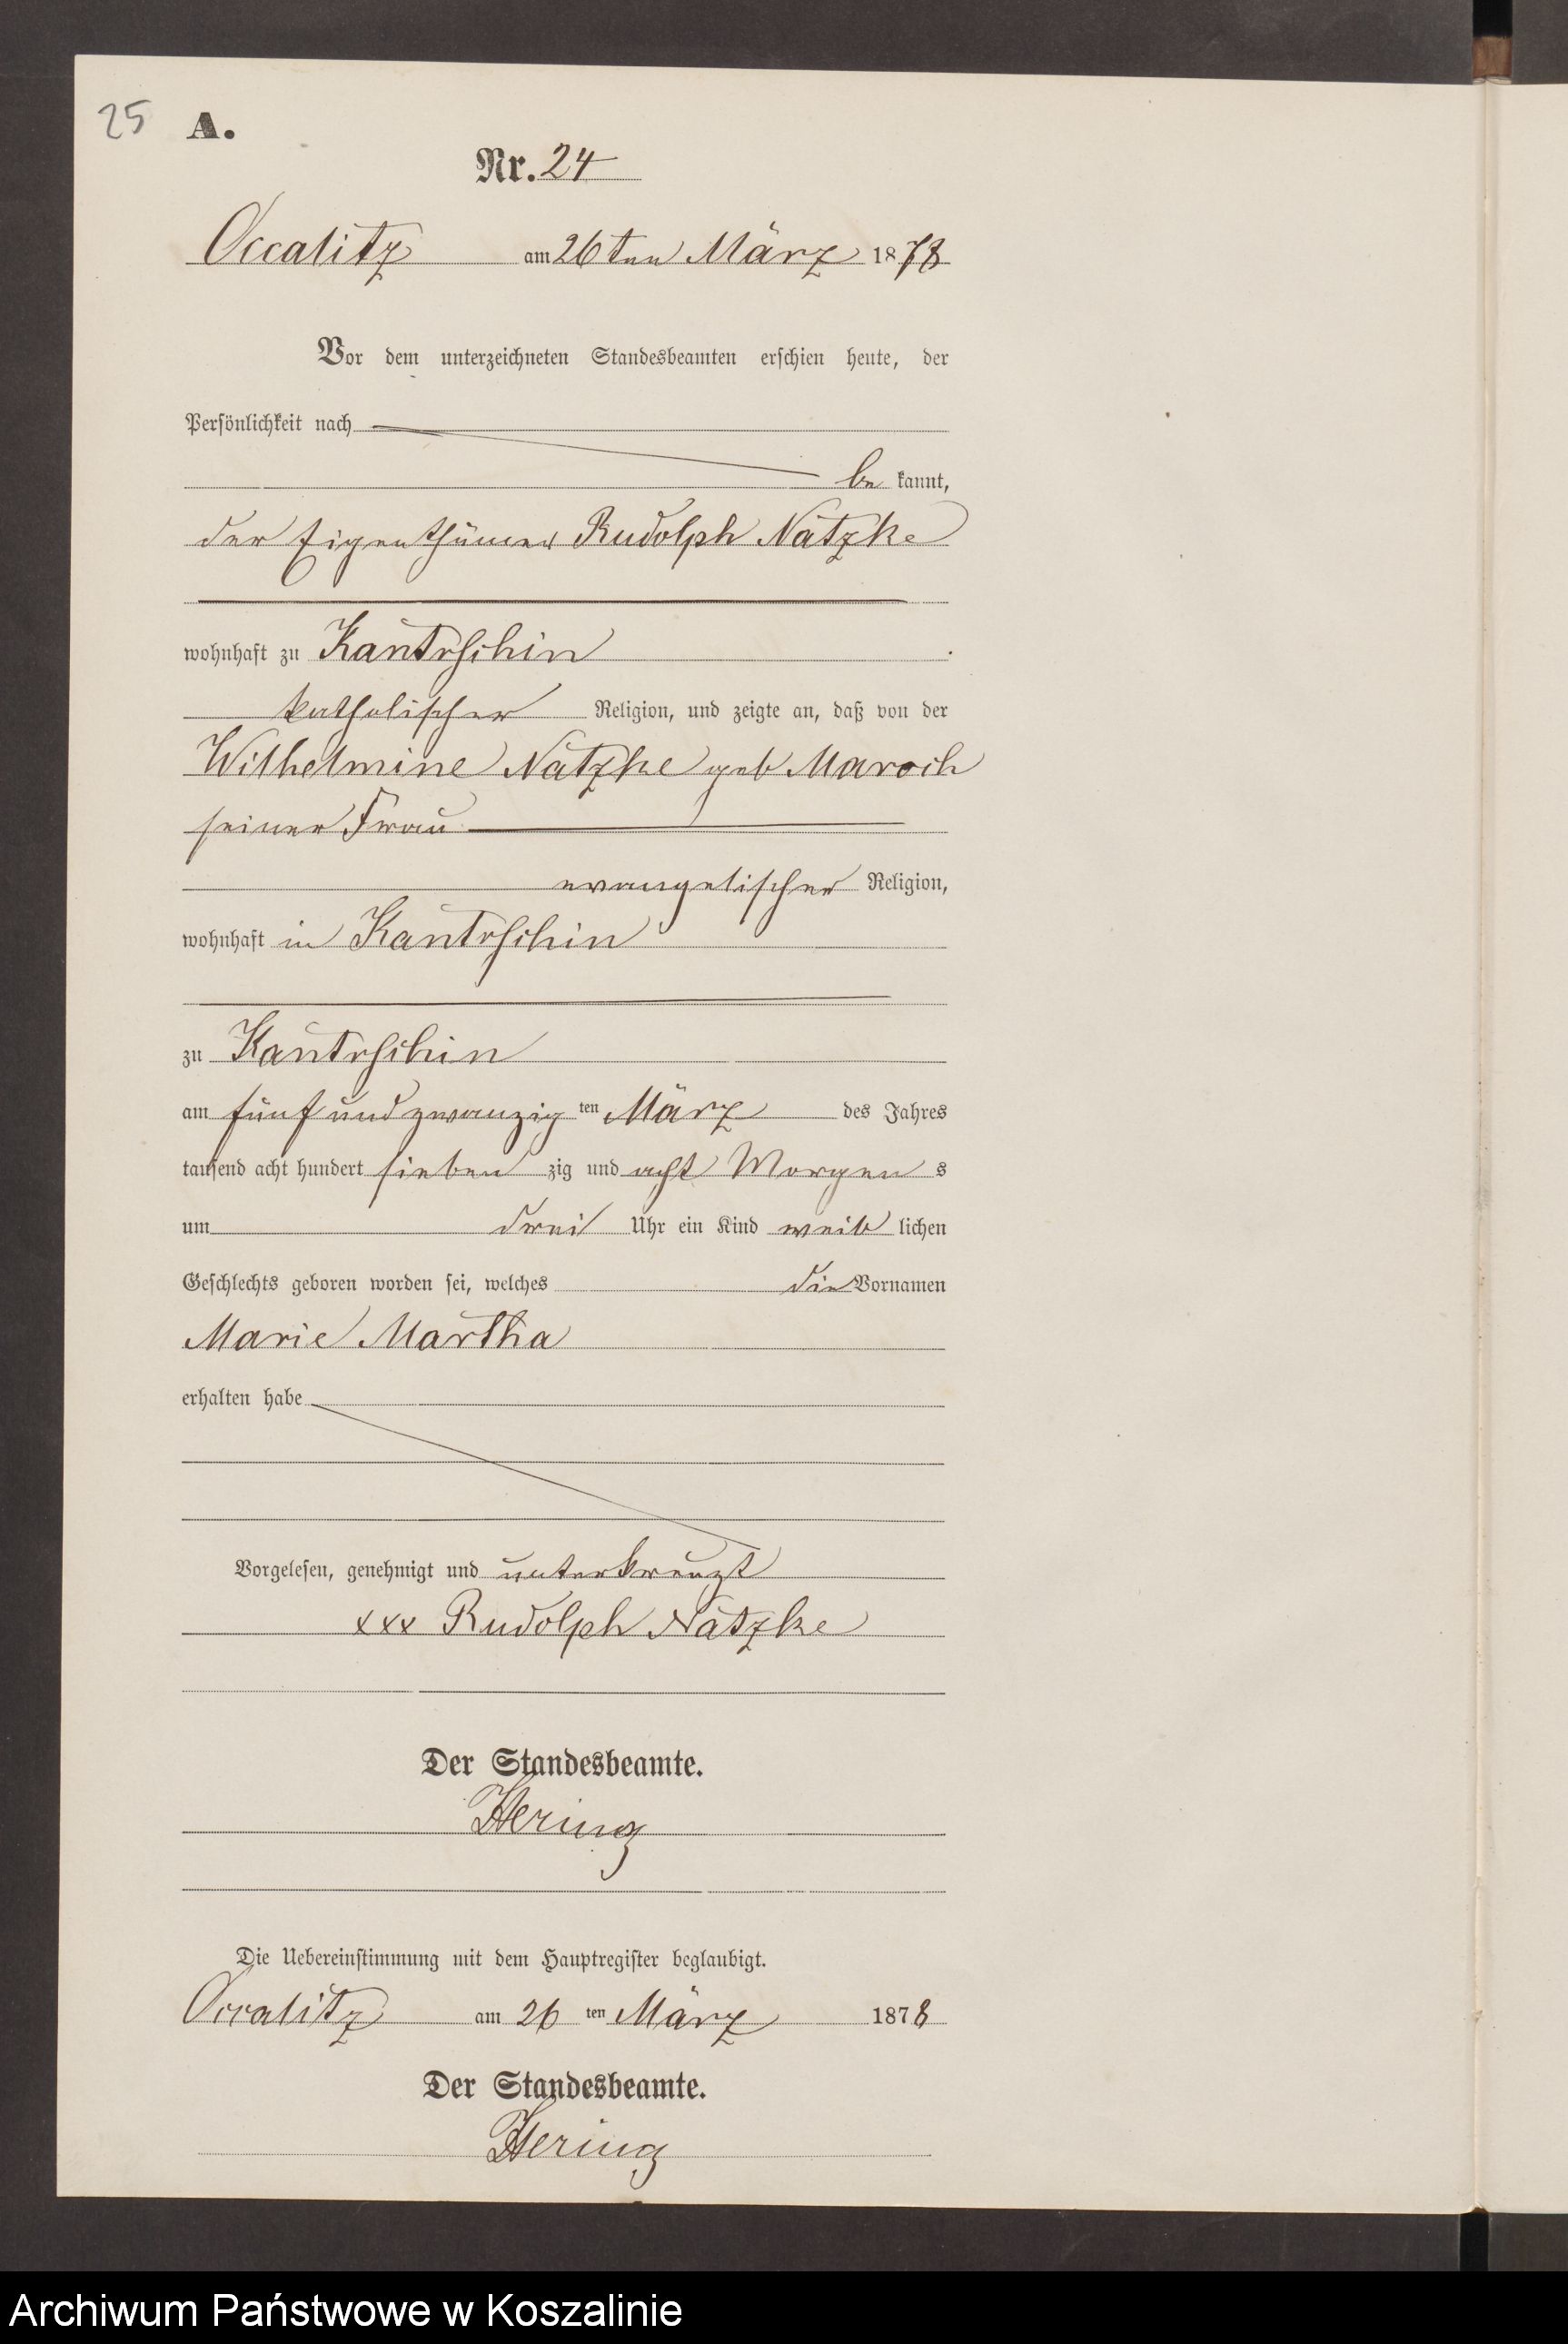 25 A.
Nr. 24
Occalitz am 26ten März 1878
Vor dem unterzeichneten Standesbeamten erschien heute, der
Persönlichkeit nach
be kannt,
der Eigenthümer Rudolph Natzke
wohnhaft zu Kantrschin
katholischer Religion, und zeigte an, daß von der
Wilhelmine Natzke geb Maroch
seiner Frau
evangelischer Religion,
wohnhaft in Kantrschin
zu Kantrschin
am fünf und zwanzig ten März des Jahres
tausend acht hundert sieben zig und acht Morgen s
um drei Uhr ein Kind weib lichen
Geschlechts geboren worden sei, welches die Vornamen
Marie Martha
erhalten habe
Vorgelesen, genehmigt und unterkreuzt
xxx Rudolph Natzke
Der Standesbeamte.
Hering
Die Uebereinstimmung mit dem Hauptregister beglaubigt.
Occalitz am 26 ten März 1878
Der Standesbeamte.
Hering
Archiwum Państwowe w Koszalinie